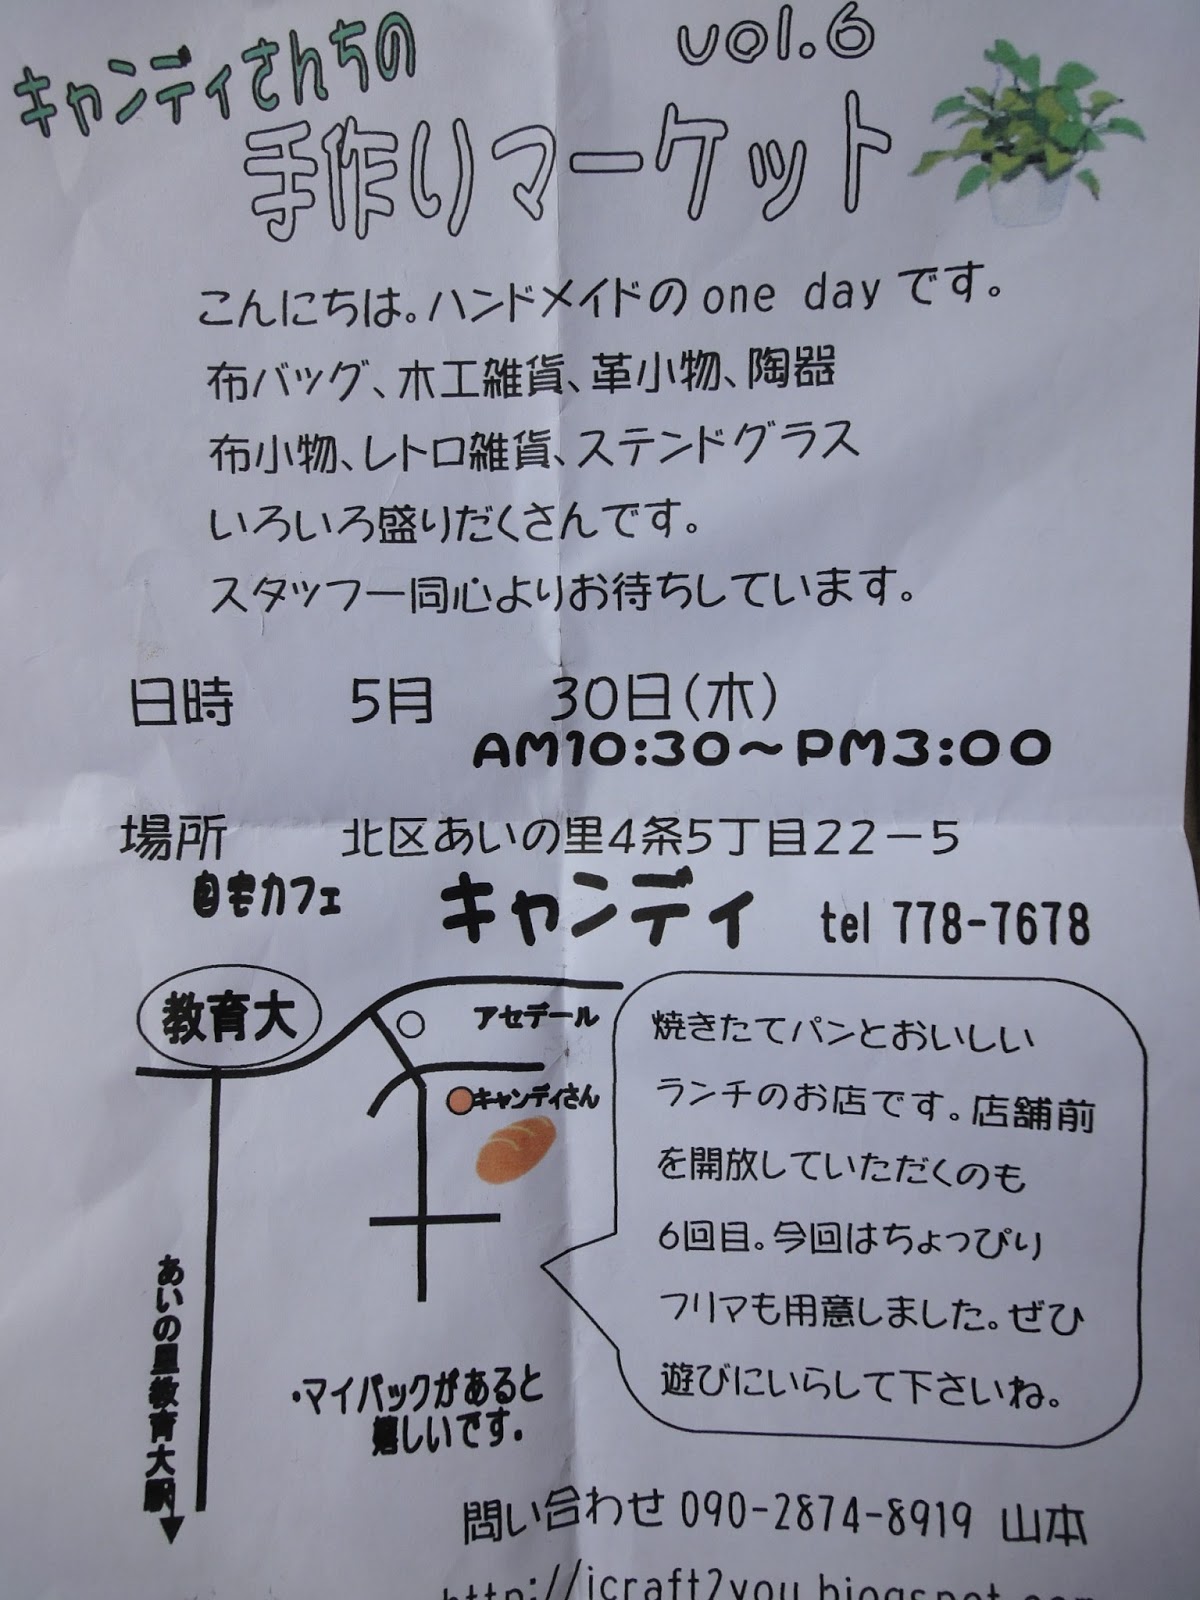 キャンディさんちの
vol.6
手作りマーケット
こんにちは。ハンドメイドのone dayです。
布バッグ、木工雑貨、革小物、陶器
布小物、レトロ雑貨、ステンドグラス
いろいろ盛りだくさんです。
スタッフ一同心よりお待ちしています。
日時 5月 30日(木)
AM10:30～PM3:00
場所 北区あいの里4条5丁目22-5
自宅カフェ キャンディ tel 778-7678
教育大
アセデール
キャンディさん
あいの里教育大駅
焼きたてパンとおいしい
ランチのお店です。店舗前
を開放していただくのも
6回目。今回はちょっぴり
フリマも用意しました。ぜひ
遊びにいらして下さいね。
・マイバックがあると
嬉しいです。
問い合わせ 090-2874-8919 山本
http://jcraft2you.blogspot.com